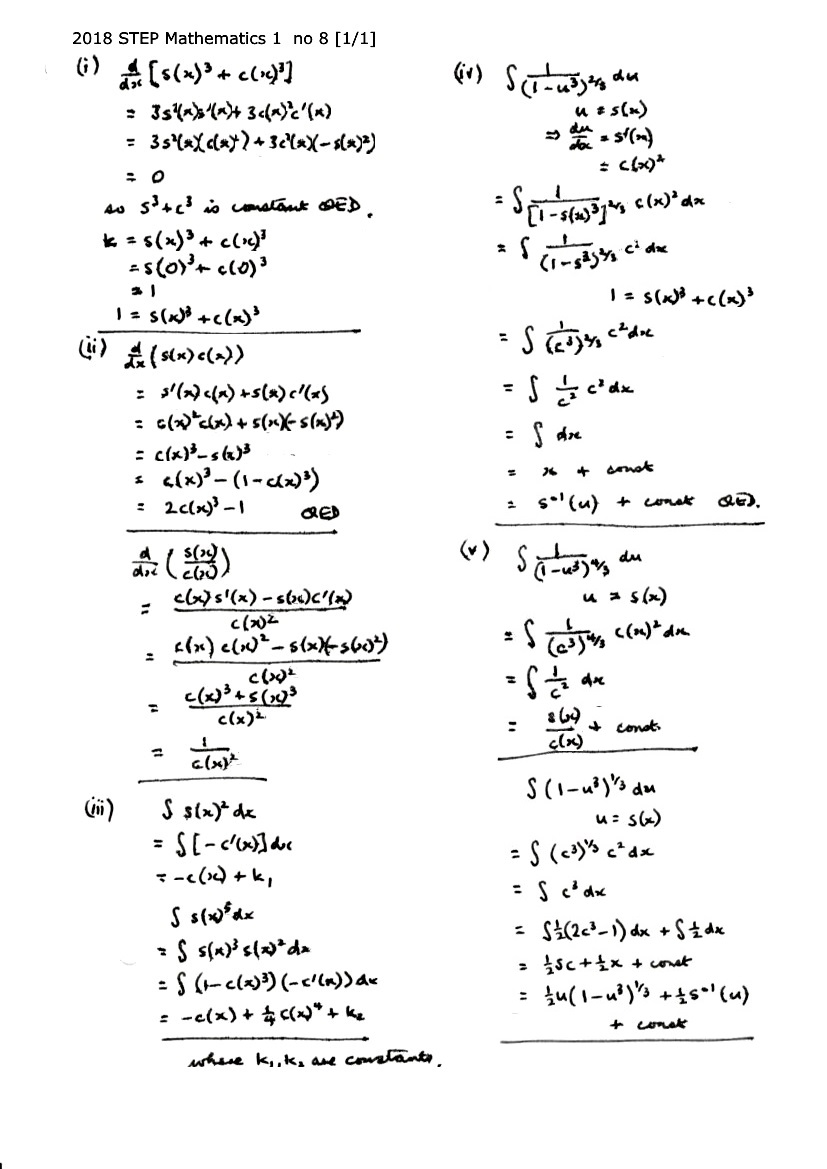 2018 STEP Mathematics 1 no 8 [1/1]
(i) d/dx [s(x)³ + c(x)³]
= 3s²(x)s'(x) + 3c(x)²c'(x)
= 3s²(x)(c(x)²) + 3c²(x)(-s(x)²)
= 0
so s³+c³ is constant QED.
k = s(x)³ + c(x)³
= s(0)³ + c(0)³
= 1
1 = s(x)³ + c(x)³
(ii) d/dx (s(x)c(x))
= s'(x)c(x) + s(x)c'(x)
= c(x)²c(x) + s(x)(-s(x)²)
= c(x)³ - s(x)³
= c(x)³ - (1-c(x)³)
= 2c(x)³ - 1 QED
d/dx (s(x)/c(x))
= (c(x)s'(x) - s(x)c'(x))/c(x)²
= (c(x)c(x)² - s(x)(-s(x)²))/c(x)²
= (c(x)³ + s(x)³)/c(x)²
= 1/c(x)²
(iii) ∫ s(x)² dx
= ∫ [-c'(x)] dx
= -c(x) + k₁
∫ s(x)⁵ dx
= ∫ s(x)³ s(x)² dx
= ∫ (1-c(x)³)(-c'(x)) dx
= -c(x) + ¼ c(x)⁴ + k₂
where k₁, k₂ are constants.
(iv) ∫ 1/(1-u³)^⅔ du
u = s(x)
⇒ du/dx = s'(x)
= c(x)²
= ∫ 1/[1-s(x)³]^⅔ c(x)² dx
= ∫ 1/(1-s³)^⅔ c² dx
1 = s(x)³ + c(x)³
= ∫ 1/(c³)^⅔ c² dx
= ∫ 1/c² c² dx
= ∫ dx
= x + const
= s⁻¹(u) + const QED.
(v) ∫ 1/(1-u³)^4/3 du
u = s(x)
= ∫ 1/(c³)^4/3 c(x)² dx
= ∫ 1/c² dx
= s(x)/c(x) + const.
∫ (1-u³)^⅓ du
u = s(x)
= ∫ (c³)^⅓ c² dx
= ∫ c³ dx
= ∫½(2c³-1) dx + ∫½ dx
= ½sc + ½x + const
= ½u(1-u³)^⅓ + ½s⁻¹(u)
+ const